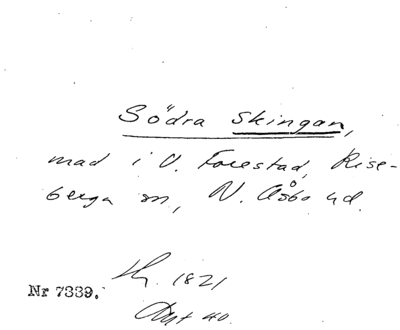 Södra Skingan,
mad i V. Forestad, Rise-
berga sn, N. Åsbo hd.
Nr 7339.
1821
40.